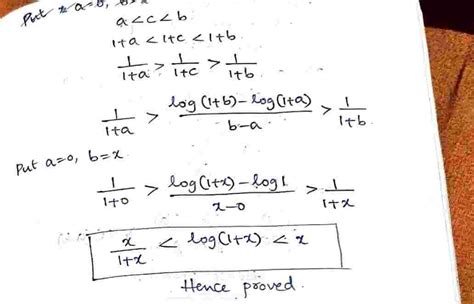 Put a=0, b=x
a<c<b
1+a < 1+c < 1+b
1/(1+a) > 1/(1+c) > 1/(1+b)
1/(1+a) > (log(1+b)-log(1+a))/(b-a) > 1/(1+b)
Put a=0, b=x
1/(1+0) > (log(1+x)-log1)/(x-0) > 1/(1+x)
x/(1+x) < log(1+x) < x
Hence proved.